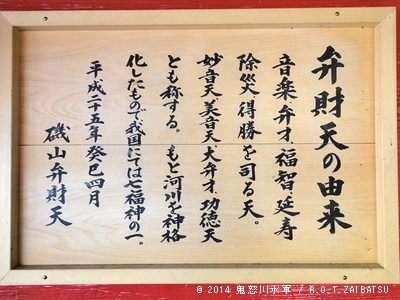 弁財天の由来
音楽、弁才、福智、延寿
除災、得勝を司る天。
妙音天、美音天、大弁才、功徳天
とも称する。もと河川を神格
化したもので、我国にては七福神の一。
平成二十五年癸巳四月
磯山弁財天
© 2014 鬼怒川水軍 / R.O.T.ZAIBATSU